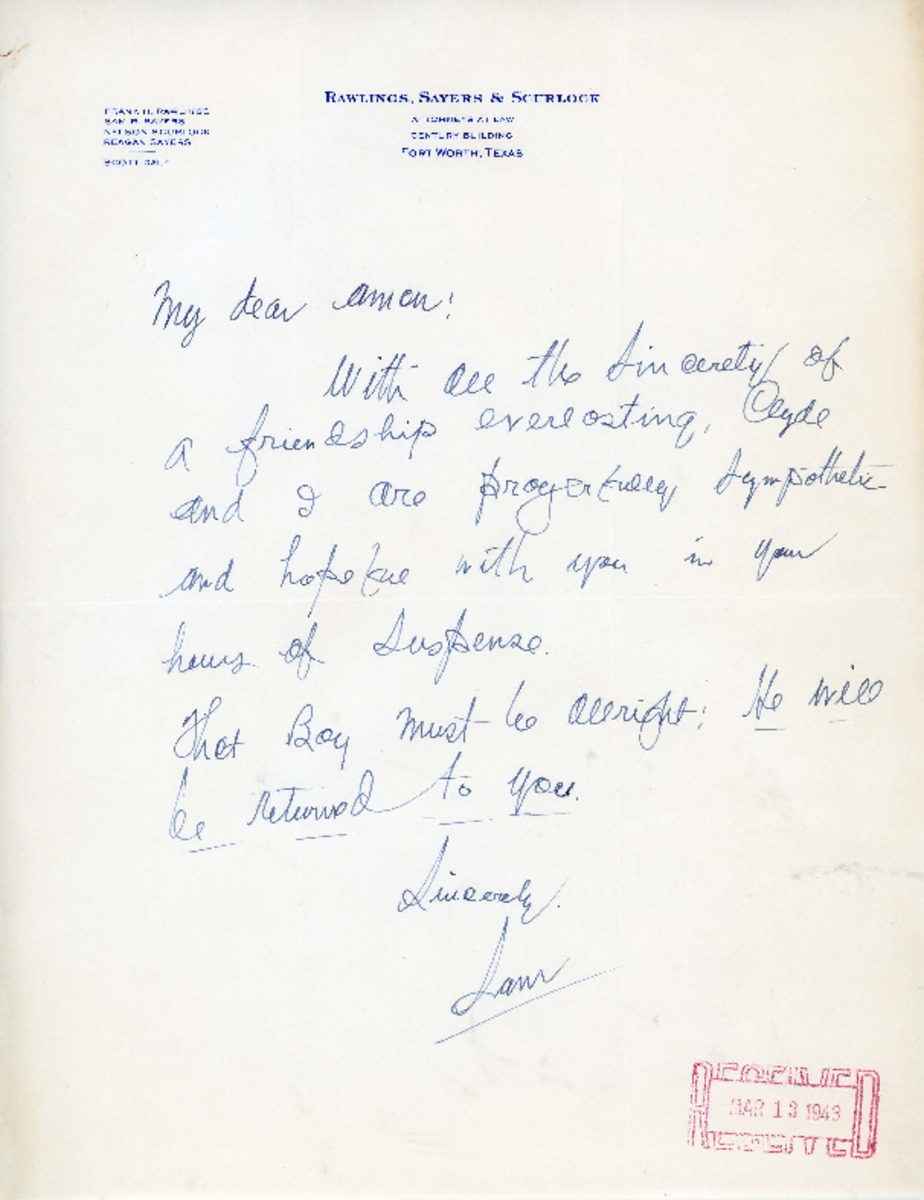 RAWLINGS, SAYERS & SCURLOCK
ATTORNEYS AT LAW
CENTURY BUILDING
FORT WORTH, TEXAS
FRANK H. RAWLINGS
SAM R. SAYERS
NELSON SCURLOCK
REAGAN SAYERS
SCOTT
My dear Amon:
With all the sincerety of
a friendship everlasting, Clyde
and I are prayerfully sympathetic
and hopeful with you in your
hours of suspense.
That Boy must be allright; He will
be returned to you.
Sincerely,
Sam
RECEIVED
MAR 13 1943